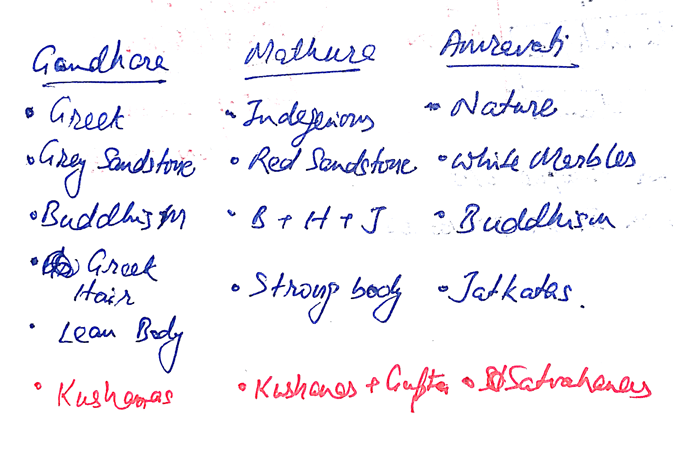 Gandhara Mathura Amravati
• Greek • Indegenious • Nature
• Grey Sandstone • Red Sandstone • White Marbles
• Buddhism • B + H + J • Buddhism
• Greek Hair • Strong body • Jatkatas.
• Lean Body
• Kushanas • Kushanas + Gupta • Satvahanas